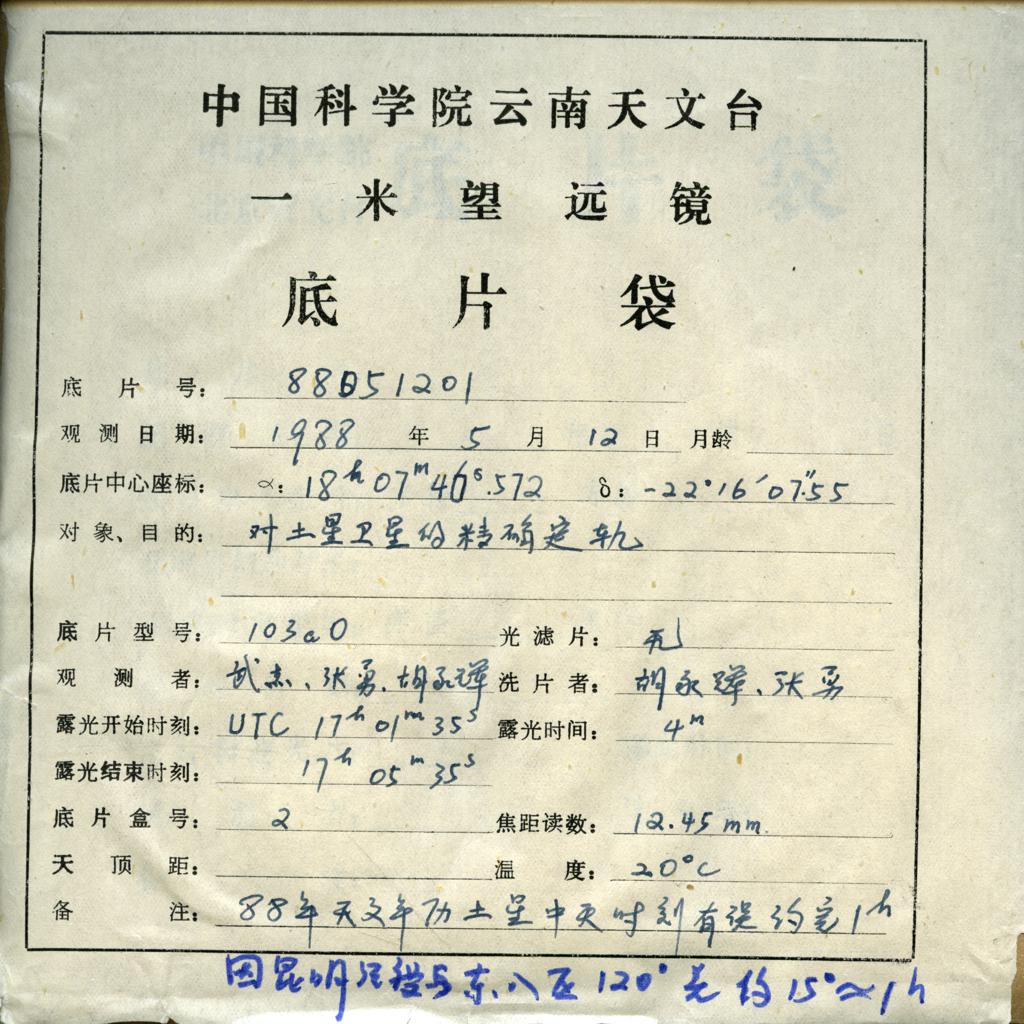 中国科学院云南天文台
一米望远镜
底片袋
底片号: 88051201
观测日期: 1988 年 5 月 12 日 月龄
底片中心座标: α: 18h 07m 46s.572 δ: -22°16′07″.55
对象、目的: 对土星卫星的精确定轨
底片型号: 103aO 光滤片: 无
观测者: 武杰、张勇、胡永辉 洗片者: 胡永辉、张勇
露光开始时刻: UTC 17h 01m 35s 露光时间: 4m
露光结束时刻: 17h 05m 35s
底片盒号: 2 焦距读数: 12.45 mm.
天顶距: 温度: 20°C
备注: 88年天文年历土星中天时刻有误约定1h
因昆明经度与东八区120°差约15°≈1h